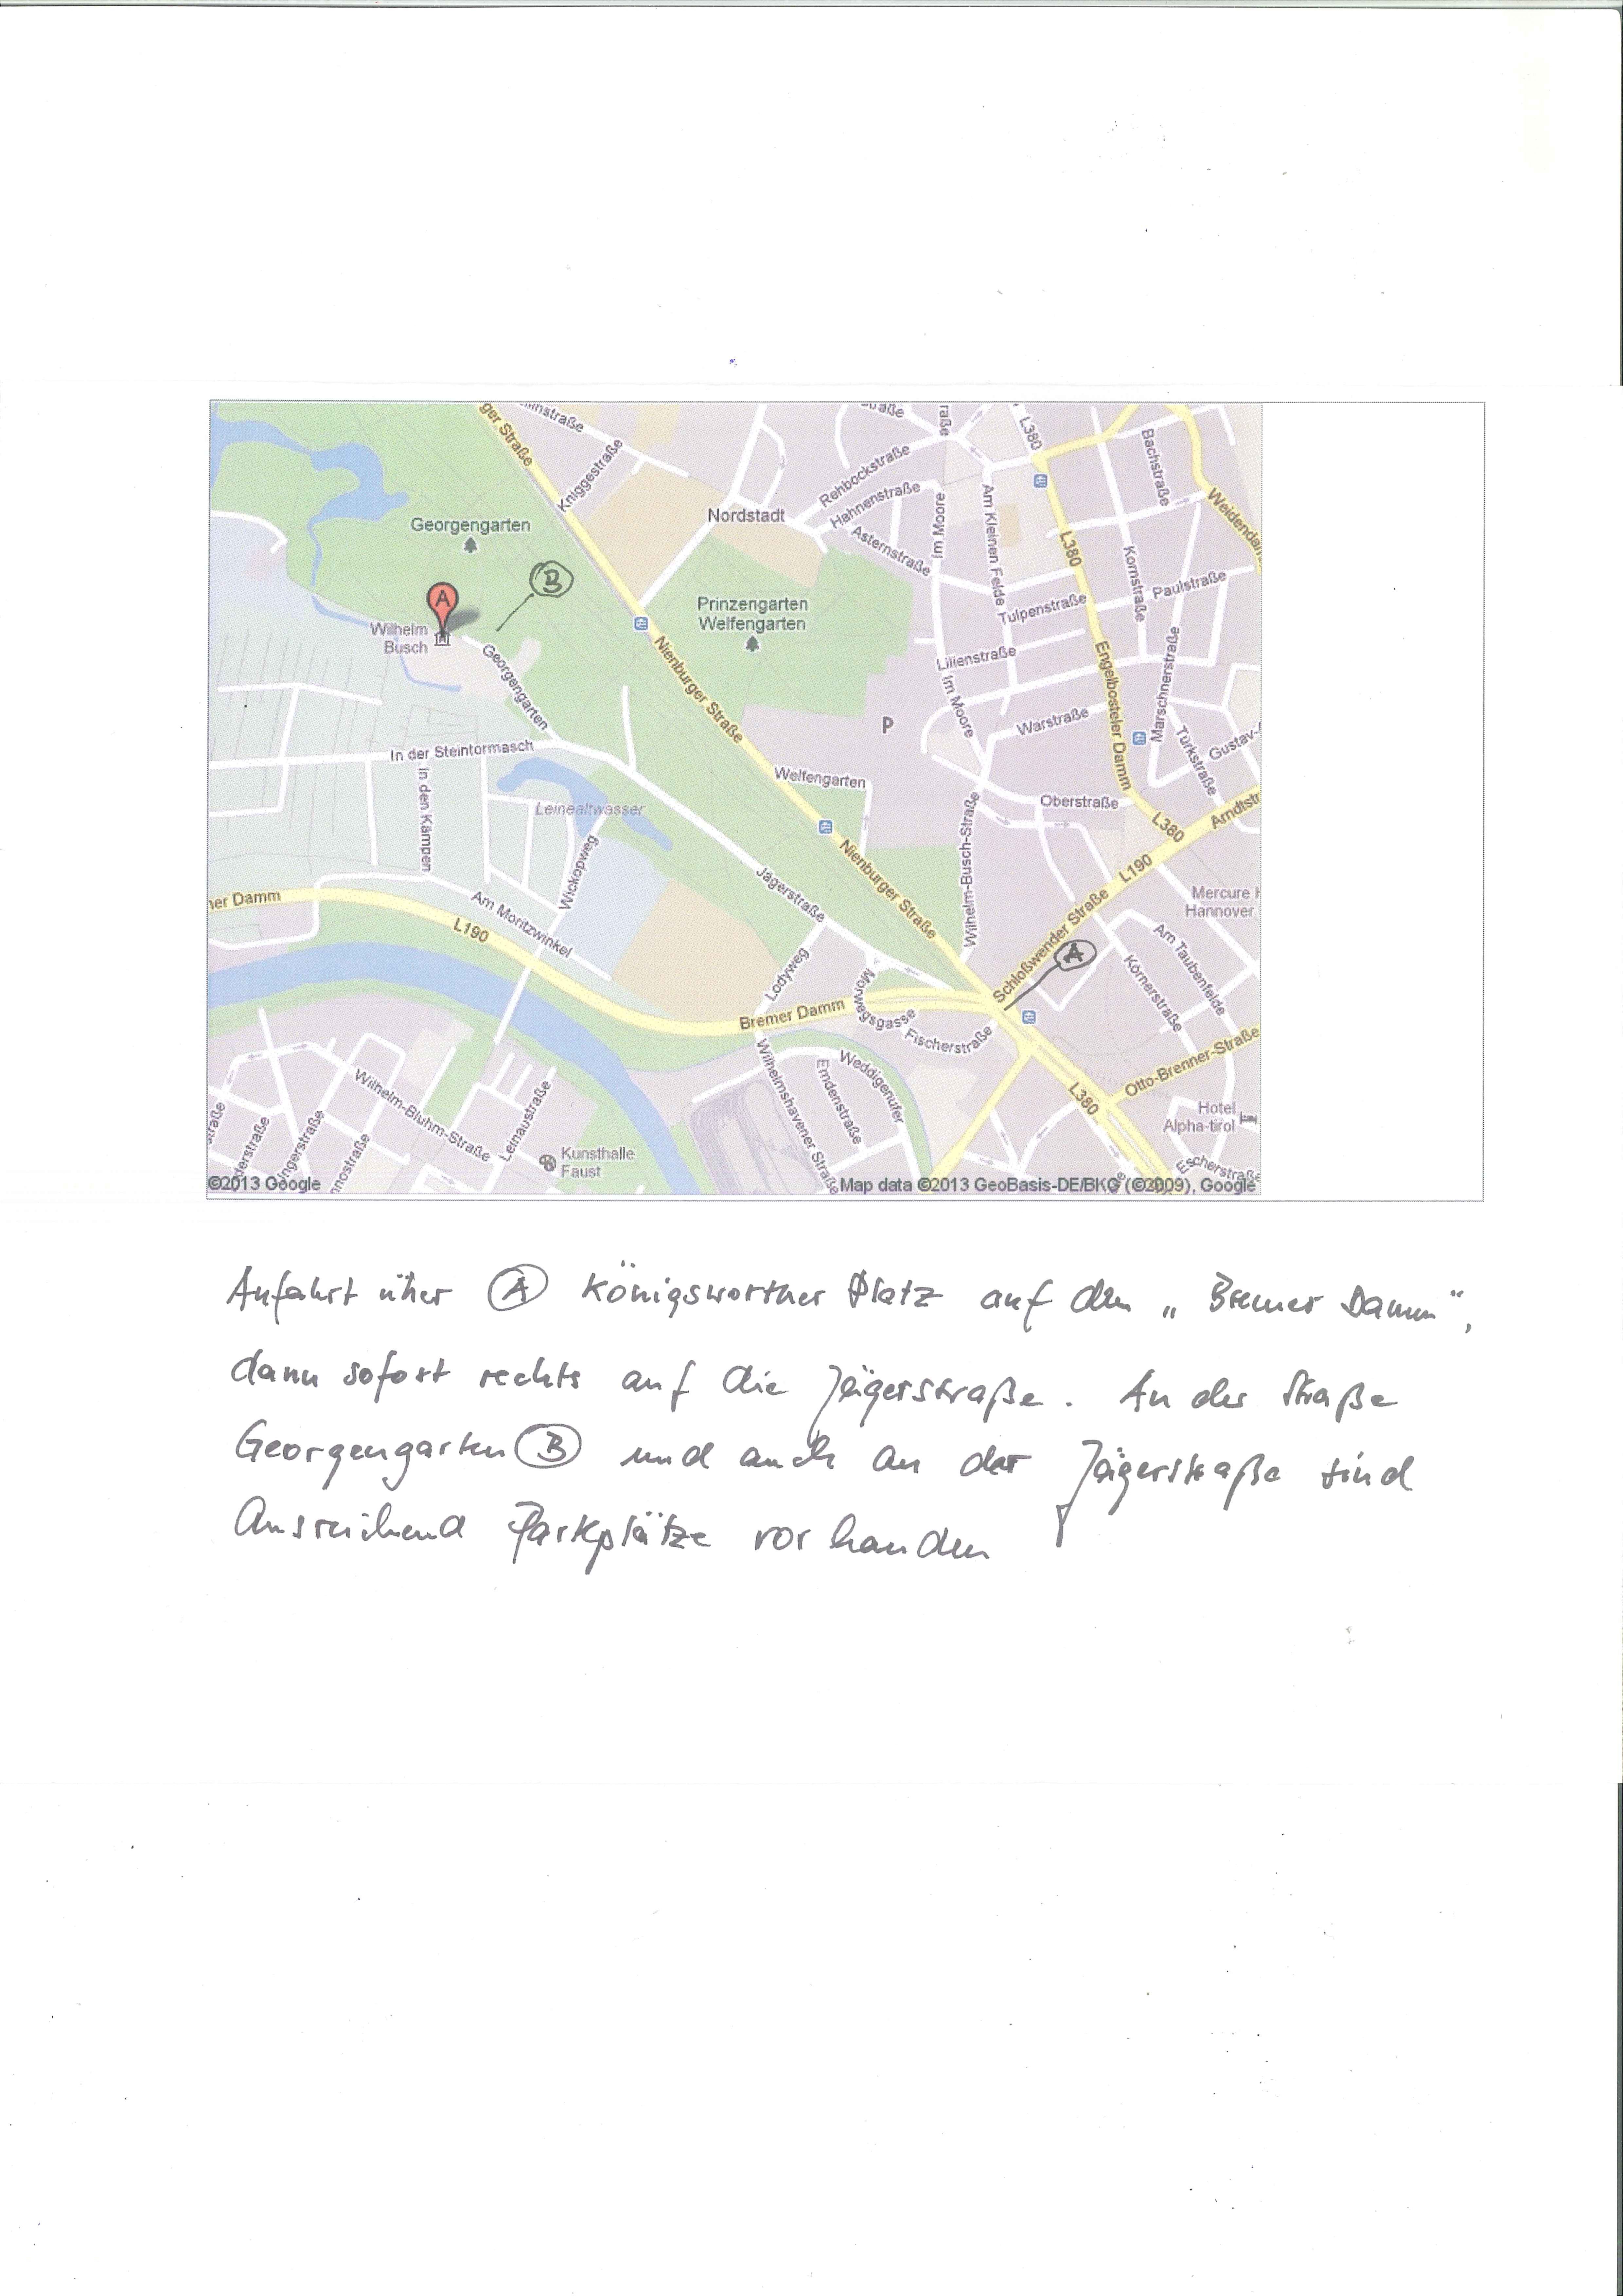 ger Straße
Kniggestraße
Nordstadt
Rehbockstraße
Hahnenstraße
Asternstraße
Im Moore
Am Kleinen Felde
L380
Bachstraße
Weidendam
Georgengarten
B
L380
Kornstraße
Paulstraße
A
Wilhelm
Busch
Prinzengarten
Welfengarten
Tulpenstraße
Georgengarten
Nienburger Straße
Lilienstraße
Im Moore
Engelbosteler Damm
Marschnerstraße
P
Warstraße
Türkstraße
Gustav-
In der Steintormasch
In den Kämpen
Welfengarten
Leinealtwasser
Oberstraße
L380
Arndtstr
Wilhelm-Busch-Straße
Nienburger Straße
Wickopweg
Jägerstraße
L190
ner Damm
Am Moritzwinkel
L190
Schloßwender Straße
Mercure H
Hannover
A
Am Taubenfelde
Körnerstraße
Lodyweg
Morwegsgasse
Bremer Damm
Fischerstraße
Wilhelmshavener Straße
Emdenstraße
Weddigenufer
Otto-Brenner-Straße
L380
Wilhelm-Bluhm-Straße
Leinaustraße
Hotel
Alpha-tirol
Kunsthalle
Faust
Escherstraße
©2013 Google
Map data ©2013 GeoBasis-DE/BKG (©2009), Google
Anfahrt über A Königsworther Platz auf den „Bremer Damm“,
dann sofort rechts auf die Jägerstraße. An der Straße
Georgengarten B und auch an der Jägerstraße sind
Ausreichend Parkplätze vorhanden